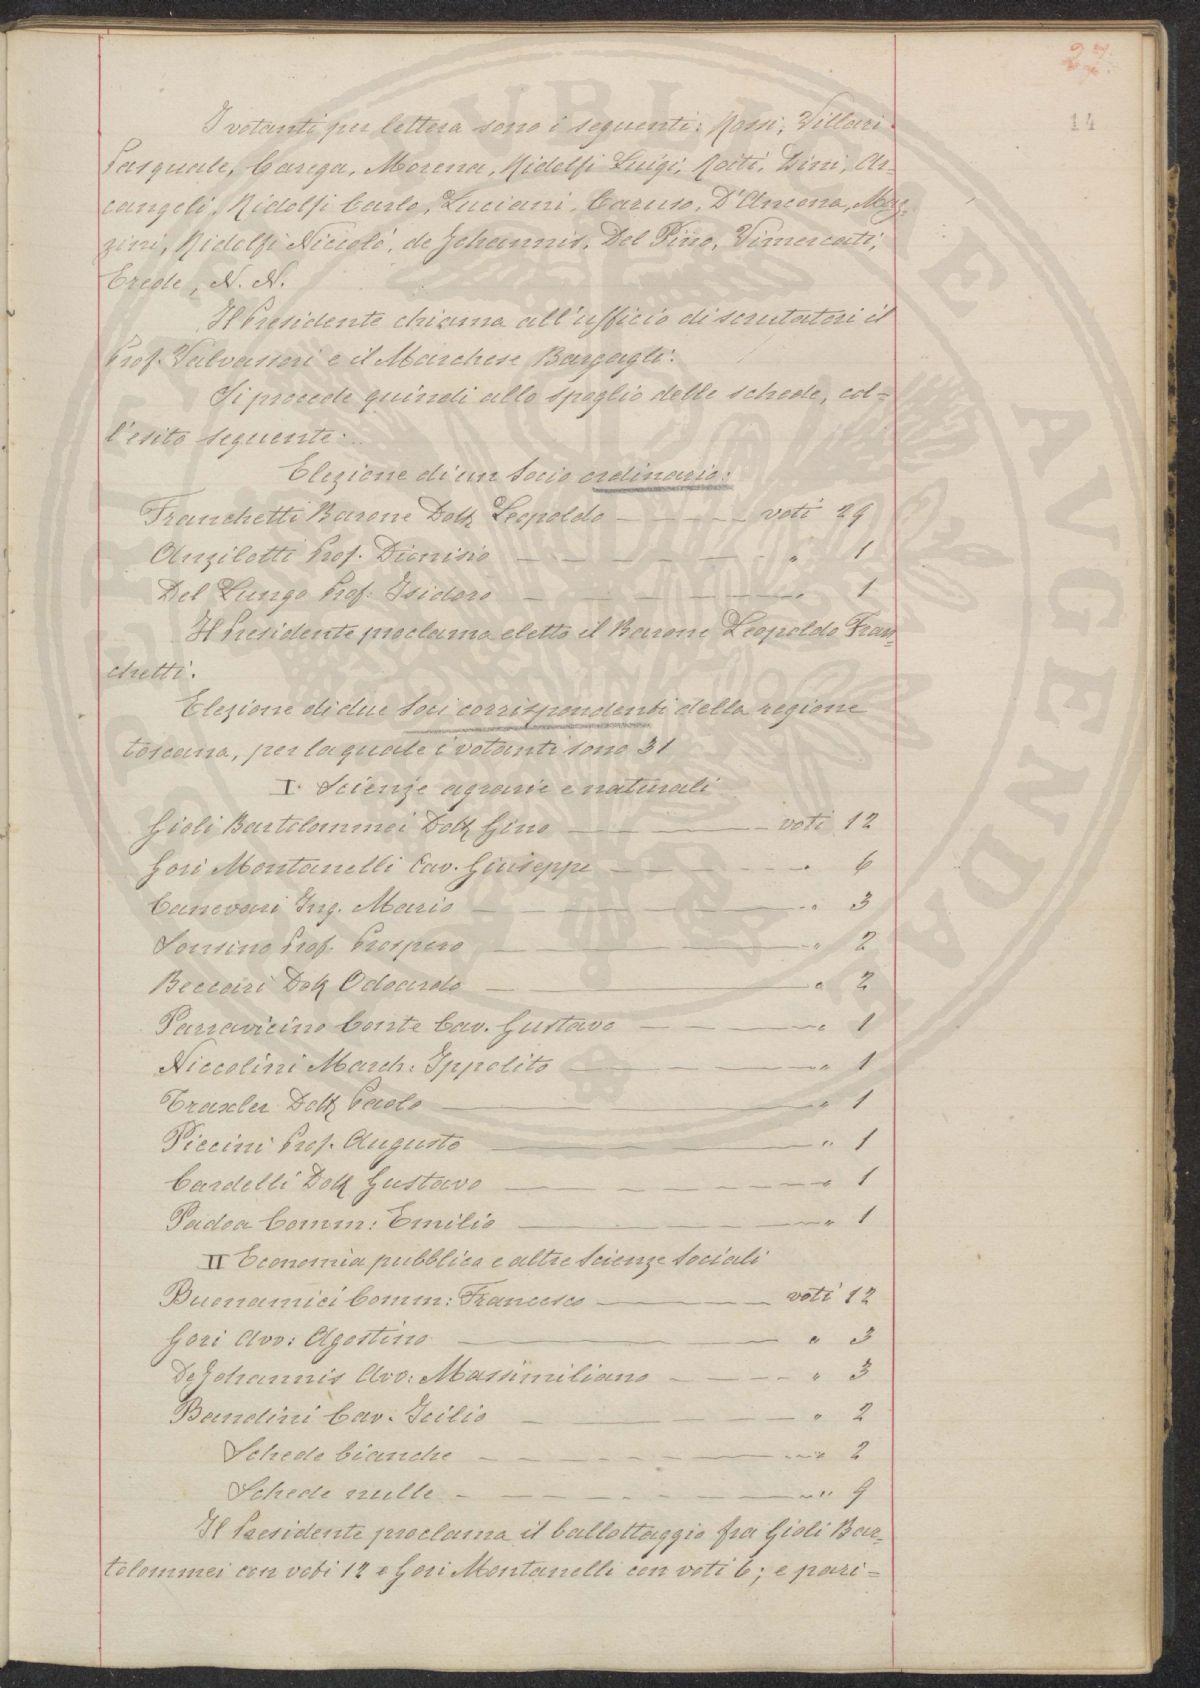 27.
14
I votanti per lettera sono i seguenti: Rossi, Villari
Pasquale, Carega, Morena, Ridolfi Luigi, Roiti, Dini, Ar=
cangeli, Ridolfi Carlo, Luciani, Caruso, D'Ancona, Maz=
zini, Ridolfi Niccolò, de Johannis, Del Pino, Vimercati,
Erede, N. N.
Il Presidente chiama all'ufficio di scrutatori il
Prof. Valvassori e il Marchese Bargagli.
Si procede quindi allo spoglio delle schede, col=
l'esito seguente:
Elezione di un Socio ordinario:
Franchetti Barone Dott Leopoldo — voti 29
Anzilotti Prof. Dionisio — " 1
Del Lungo Prof. Isidoro — " 1
Il Presidente proclama eletto il Barone Leopoldo Fran=
chetti.
Elezione di due Soci corrispondenti della regione
toscana, per la quale i votanti sono 31
I. Scienze agrarie e naturali
Gioli Bartolommei Dott Gino — voti 12
Gori Montanelli Cav. Giuseppe — " 6
Canevari Ing. Mario — " 3
Sonsino Prof. Prospero — " 2
Beccari Dott Odoardo — " 2
Parravicino Conte Cav. Gustavo — " 1
Niccolini March: Ippolito — " 1
Traxler Dott Paolo — " 1
Piccini Prof. Augusto — " 1
Cardelli Dott Gustavo — " 1
Padoa Comm: Emilio — " 1
II Economia pubblica e altre Scienze Sociali
Buonamici Comm: Francesco — voti 12
Gori Avv: Agostino — " 3
De Johannis Avv: Massimiliano — " 3
Bandini Cav. Icilio — " 2
Schede bianche — " 2
Schede nulle — " 9
Il Presidente proclama il ballottaggio fra Gioli Bar=
tolommei con voti 12 e Gori Montanelli con voti 6; e pari=